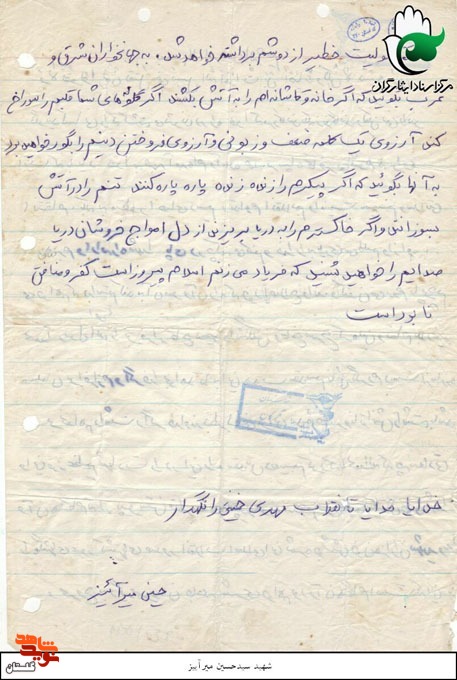 مرکز اسناد ایثارگران
مسئولیت خطیر از دوشم برداشته خواهد شد. به جهانخواران شرق و
غرب بگوئید که اگر خانه و کاشانه ام را به آتش بکشند اگر گلوله های شما قلبم را سوراخ
کند آرزوی یک کلمه ضعف و زبونی و آرزوی فروختن دینم را بگور خواهید برد
به آنها بگوئید که اگر پیکرم را زنده زنده پاره پاره کنند تنم را در آتش
بسوزانند و اگر خاکسترم را به دریا بریزند از دل امواج خروشان دریا
صدایم را خواهید شنید که فریاد می زنم اسلام پیروز است کفر و منافق
نابود است
خدایا خدایا تا انقلاب مهدی خمینی را نگهدار
حسین میرآئیز
شهید سیدحسین میرآییز
نوید شاهد
گلستان